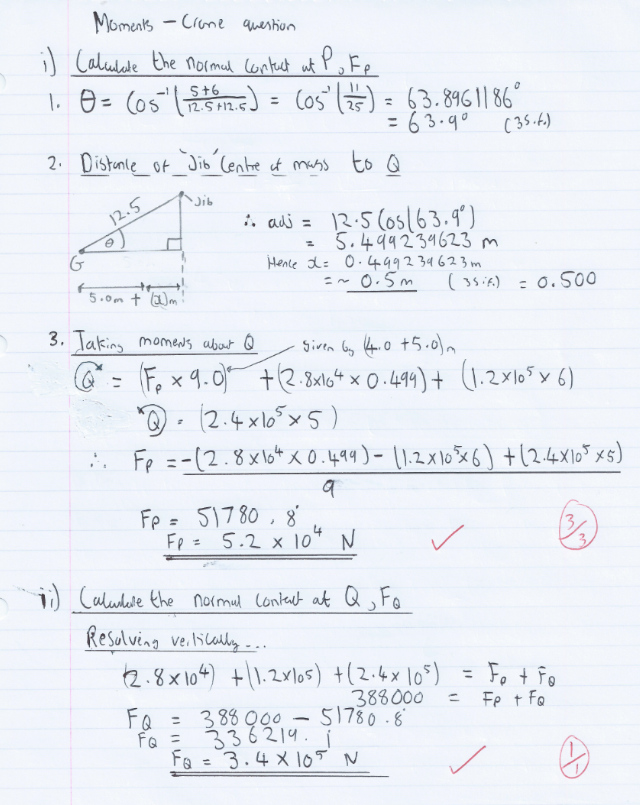 Moments – Crane question
i) Calculate the normal contact at P, Fp
1. θ = Cos⁻¹(5+6/12.5+12.5) = Cos⁻¹(11/25) = 63.8961186°
= 63.9° (3s.f.)
2. Distance of 'Jib' Centre of mass to Q
12.5
Jib
θ
G
5.0m + (x)m
∴ adj = 12.5 Cos(63.9°)
= 5.499239623 m
Hence x = 0.499239623m
= ~ 0.5m (3s.f.) = 0.500
3. Taking moments about Q
given by (4.0 + 5.0)m
Q = (Fp x 9.0) + (2.8x10⁴ x 0.499) + (1.2x10⁵ x 6)
Q = (2.4x10⁵ x 5)
∴ Fp = -(2.8x10⁴ x 0.499) - (1.2x10⁵x6) + (2.4x10⁵ x5)
9
Fp = 51780.8̇
Fp = 5.2 x 10⁴ N
3/3
ii) Calculate the normal contact at Q, FQ
Resolving vertically...
(2.8x10⁴) + (1.2x10⁵) + (2.4x10⁵) = Fp + FQ
388000 = Fp + FQ
FQ = 388000 – 51780.8̇
FQ = 336219.1̇
FQ = 3.4 x 10⁵ N
1/1